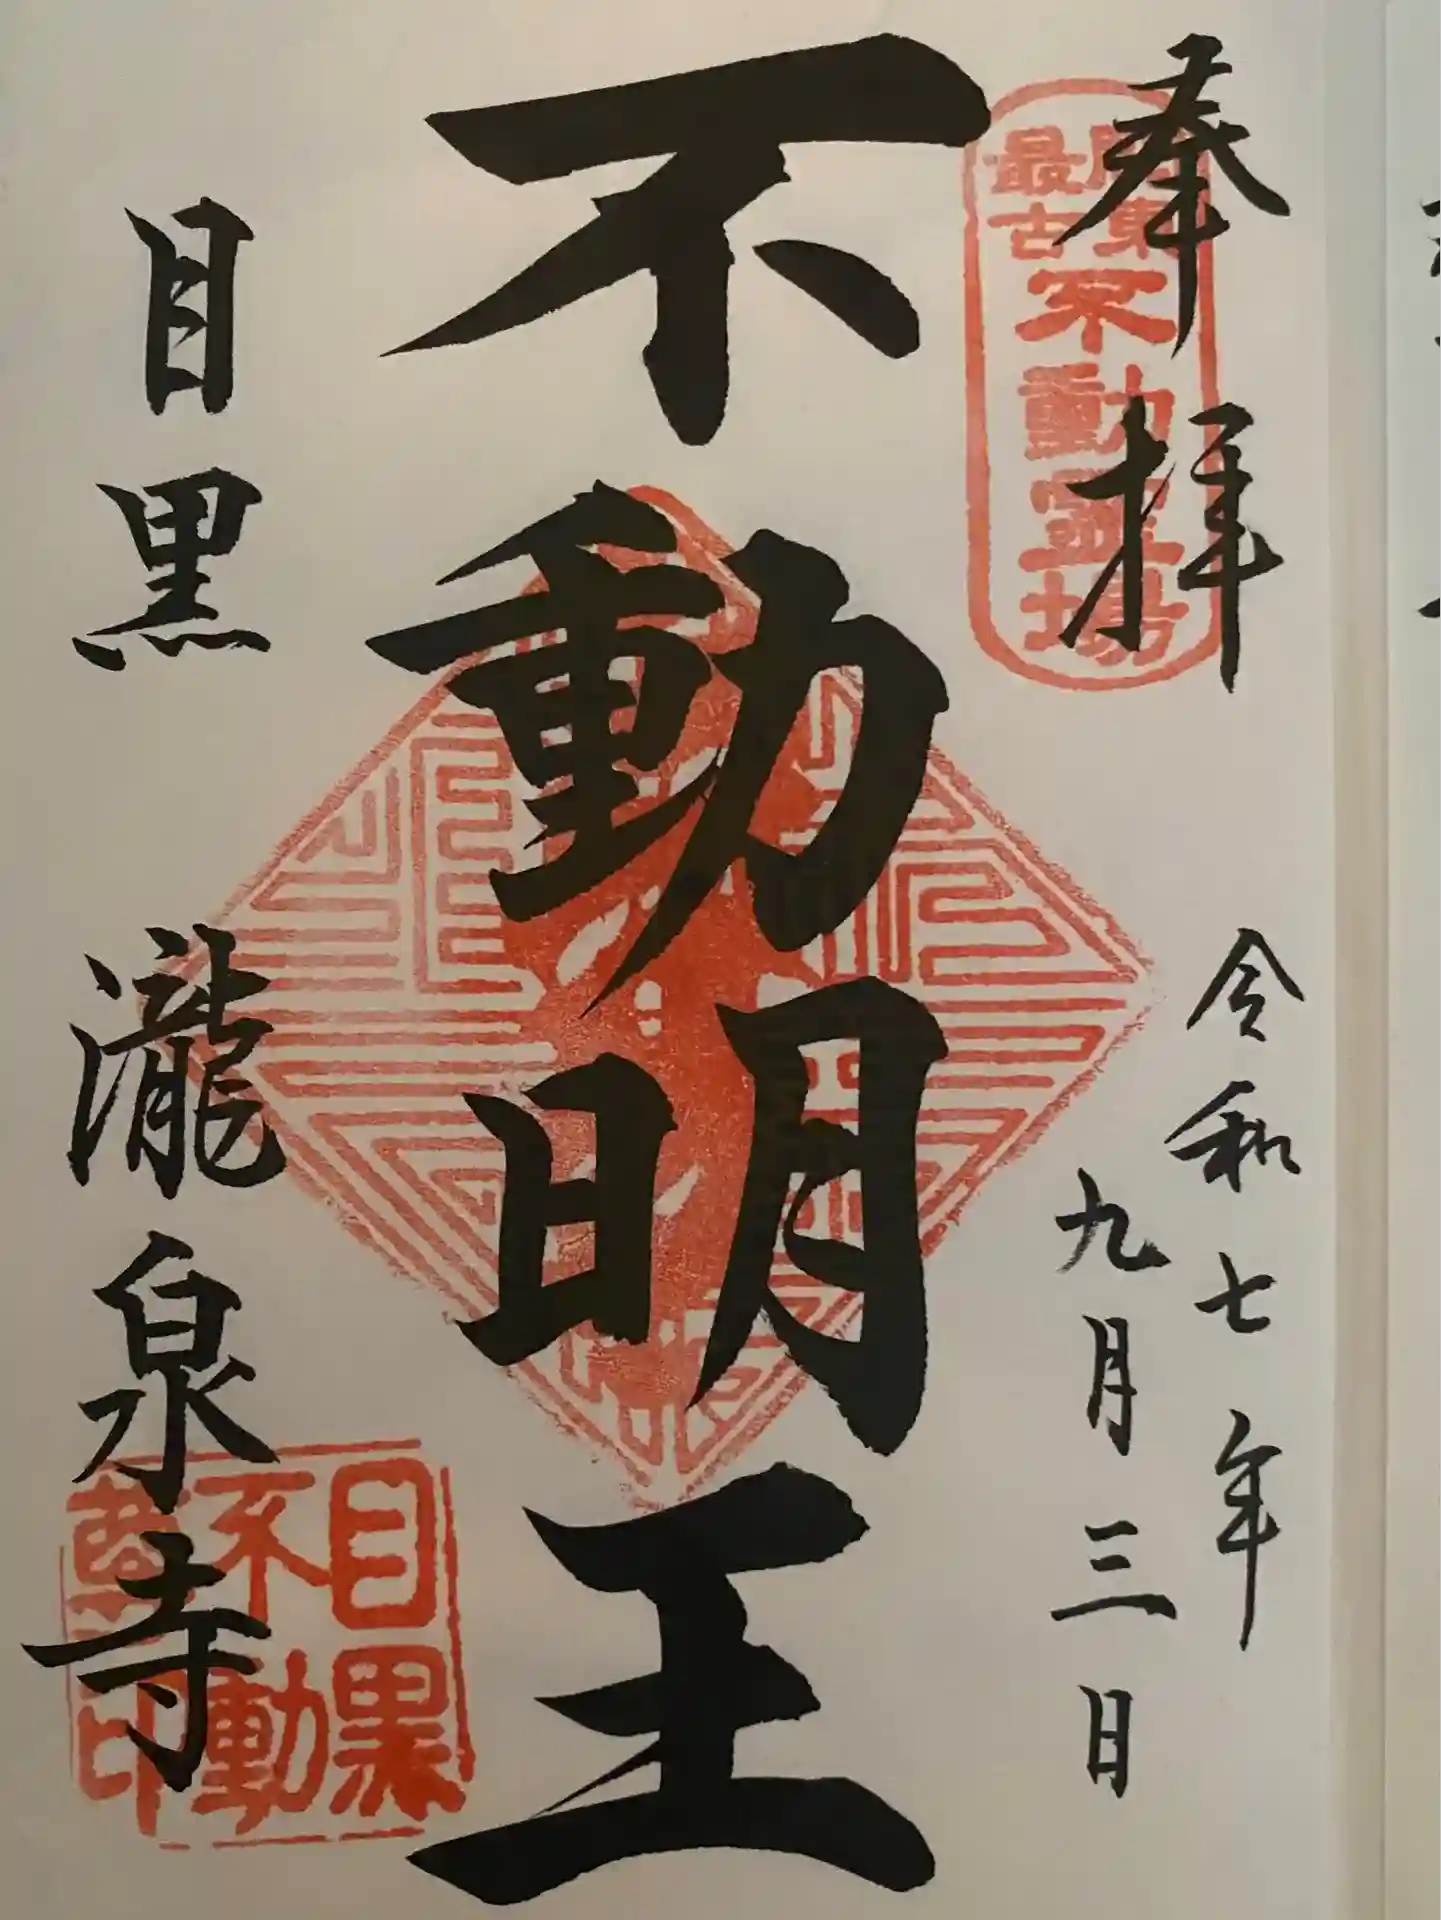 奉拝
令和七年
九月三日
関東
最古
不動霊場
不動明王
目黒
瀧泉寺
目黒
不動
尊印